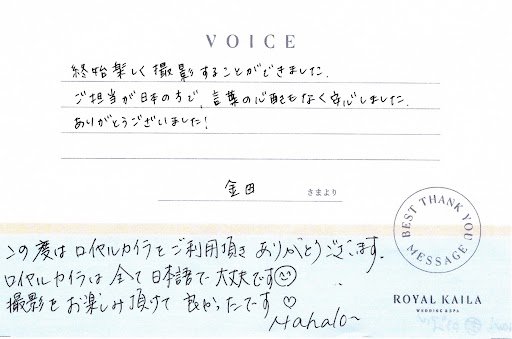 VOICE
終始楽しく撮影することができました.
ご担当が日本の方で、言葉の心配もなく安心しました.
ありがとうございました!
金田 さまより
BEST THANK YOU MESSAGE
この度はロイヤルカイラをご利用頂きありがとうございます.
ロイヤルカイラは全て日本語で大丈夫です
撮影をお楽しみ頂けて良かったです♡
Mahalo~
ROYAL KAILA
WEDDING & SPA